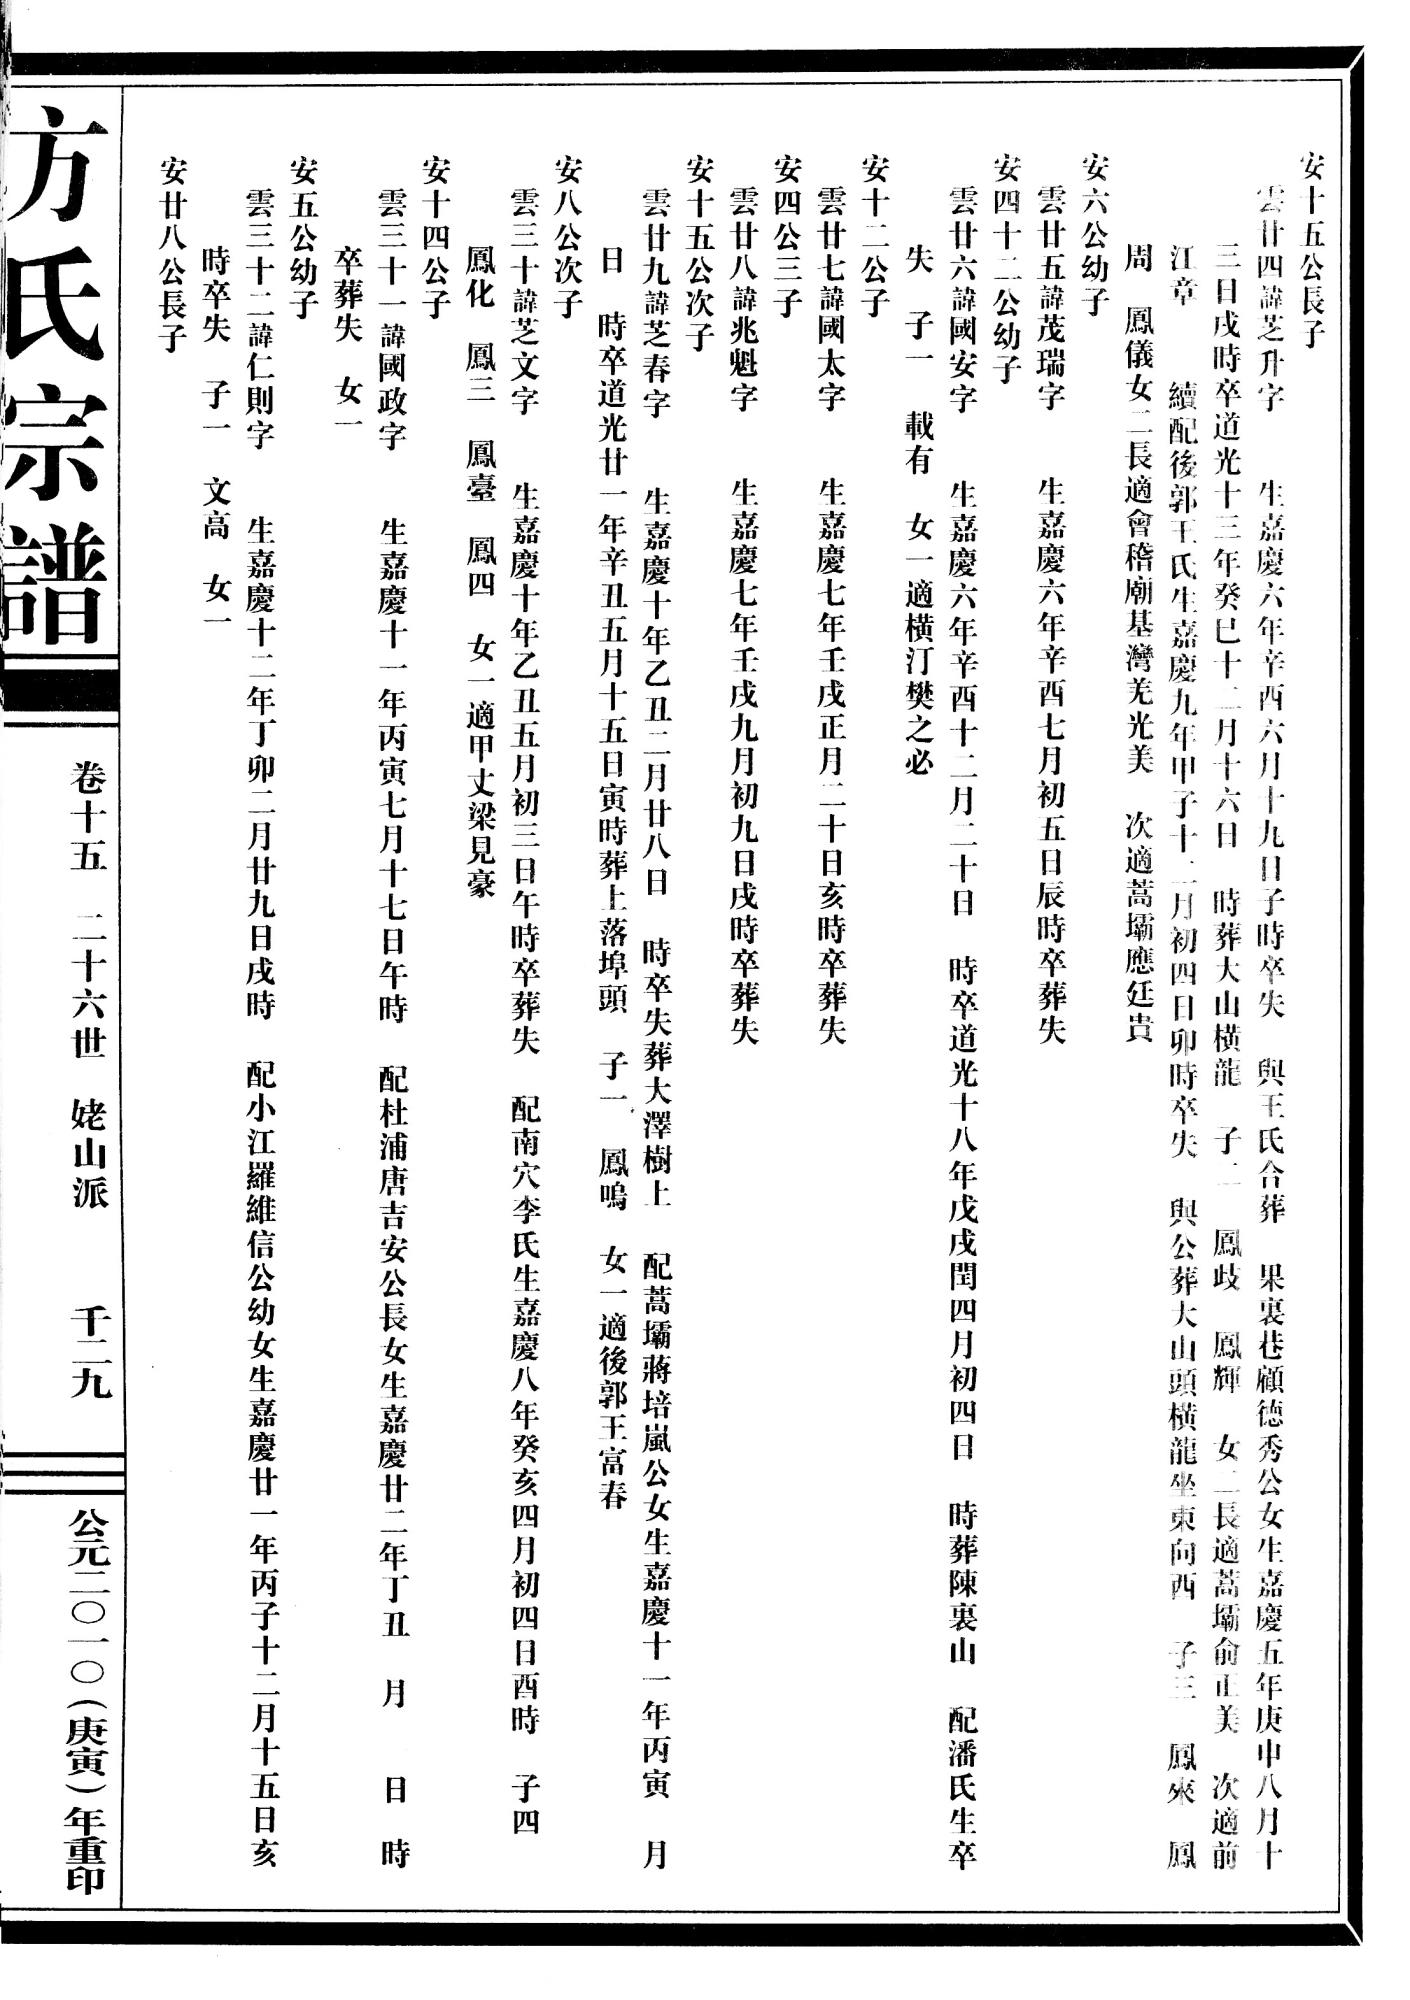 安十五公長子
雲廿四諱芝升字　生嘉慶六年辛酉六月十九日子時卒失　與王氏合葬　果裏巷顧德秀公女生嘉慶五年庚申八月十
三日戌時卒道光十三年癸巳十二月十六日　時葬大山橫龍　子二　鳳歧　鳳輝　女二長適蒿壩俞正美　次適前
江章　續配後郭王氏生嘉慶九年甲子十二月初四日卯時卒失　與公葬大山頭橫龍坐東向西　子三　鳳來　鳳
周　鳳儀女二長適會稽廟基灣羌光美　次適蒿壩應廷貴
安六公幼子
雲廿五諱茂瑞字　生嘉慶六年辛酉七月初五日辰時卒葬失
安四十二公幼子
雲廿六諱國安字　生嘉慶六年辛酉十二月二十日　時卒道光十八年戊戌閏四月初四日　時葬陳裏山　配潘氏生卒
失　子一　載有　女一適橫汀樊之必
安十二公子
雲廿七諱國太字　生嘉慶七年壬戌正月二十日亥時卒葬失
安四公三子
雲廿八諱兆魁字　生嘉慶七年壬戌九月初九日戌時卒葬失
安十五公次子
雲廿九諱芝春字　生嘉慶十年乙丑二月廿八日　時卒失葬大澤樹上　配蒿壩蔣培嵐公女生嘉慶十一年丙寅　月
日　時卒道光廿一年辛丑五月十五日寅時葬上落埠頭　子一　鳳鳴　女一適後郭王富春
安八公次子
雲三十諱芝文字　生嘉慶十年乙丑五月初三日午時卒葬失　配南穴李氏生嘉慶八年癸亥四月初四日酉時　子四
鳳化　鳳三　鳳臺　鳳四　女一適甲丈梁見豪
安十四公子
雲三十一諱國政字　生嘉慶十一年丙寅七月十七日午時　配杜浦唐吉安公長女生嘉慶廿二年丁丑　月　日　時
卒葬失　女一
安五公幼子
雲三十二諱仁則字　生嘉慶十二年丁卯二月廿九日戌時　配小江羅維信公幼女生嘉慶廿一年丙子十二月十五日亥
時卒失　子一　文高　女一
安廿八公長子
方氏宗譜
卷十五　二十六世　姥山派　千二九
公元二〇一〇（庚寅）年重印